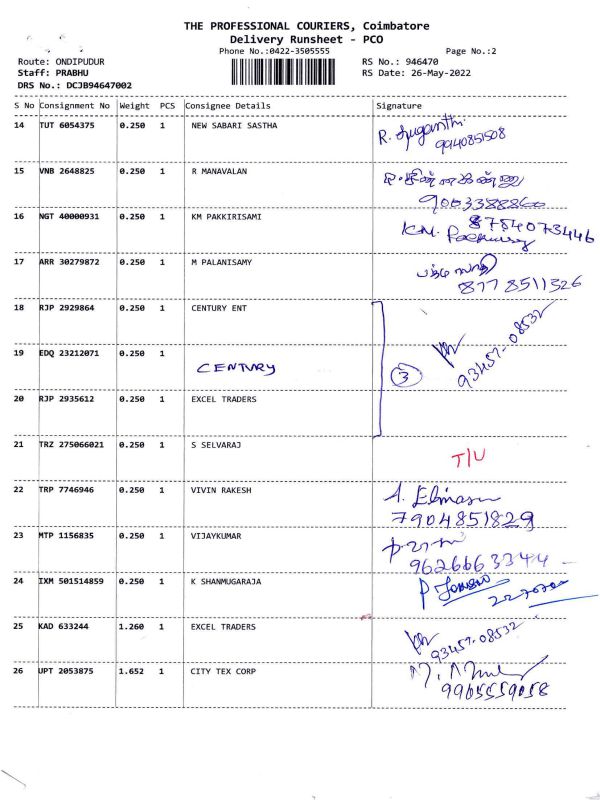 THE PROFESSIONAL COURIERS, Coimbatore
Delivery Runsheet - PCO
Phone No.:0422-3505555
Page No.:2
Route: ONDIPUDUR
RS No.: 946470
Staff: PRABHU
RS Date: 26-May-2022
DRS No.: DCJB94647002
S No Consignment No Weight PCS Consignee Details Signature
14 TUT 6054375 0.250 1 NEW SABARI SASTHA R. Suganthi
9940851508
15 VNB 2648825 0.250 1 R MANAVALAN
9003388860
16 NGT 40000931 0.250 1 KM PAKKIRISAMI 8754073446
KM.
17 ARR 30279872 0.250 1 M PALANISAMY
8778511326
18 RJP 2929864 0.250 1 CENTURY ENT
93457-08532
19 EDQ 23212071 0.250 1 CENTURY 3
20 RJP 2935612 0.250 1 EXCEL TRADERS
21 TRZ 275066021 0.250 1 S SELVARAJ T/U
22 TRP 7746946 0.250 1 VIVIN RAKESH
7904851829
23 MTP 1156835 0.250 1 VIJAYKUMAR
9626663344
24 IXM 501514859 0.250 1 K SHANMUGARAJA
25 KAD 633244 1.260 1 EXCEL TRADERS
93457-08532
26 UPT 2053875 1.652 1 CITY TEX CORP
9965559058